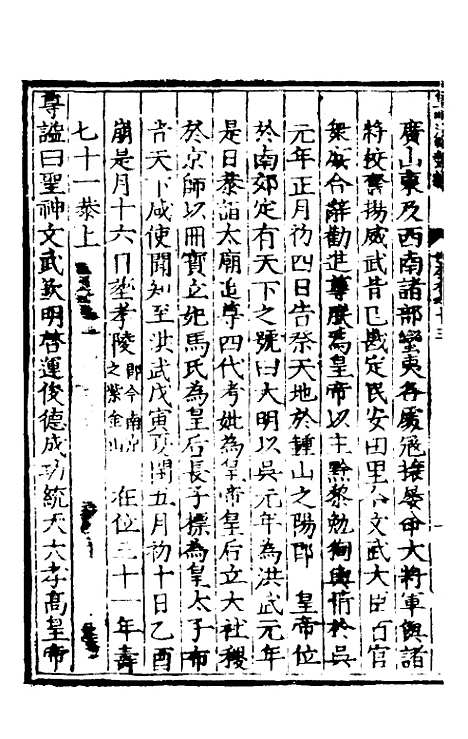 廣山東及西南諸部蠻夷各處寇攘屢命大將軍與諸
將校奮揚威武皆已戡定民安田里今文武大臣百官
衆庶合辭勸進尊朕為皇帝以主黔黎勉徇輿情於吳
元年正月初四日告祭天地於鍾山之陽即 皇帝位
於南郊定有天下之號曰大明以吳元年為洪武元年
是日恭詣太廟追尊四代考妣為皇帝皇后立大社稷
於京師以冊寶立妃馬氏為皇后長子標為皇太子布
告天下咸使聞知至洪武戊寅夏閏五月初十日乙酉
崩是月十六日塟孝陵即今南京之紫金山 在位三十一年壽
七十一恭上
尊謚曰聖神文武欽明啓運俊德成功統天大孝高皇帝